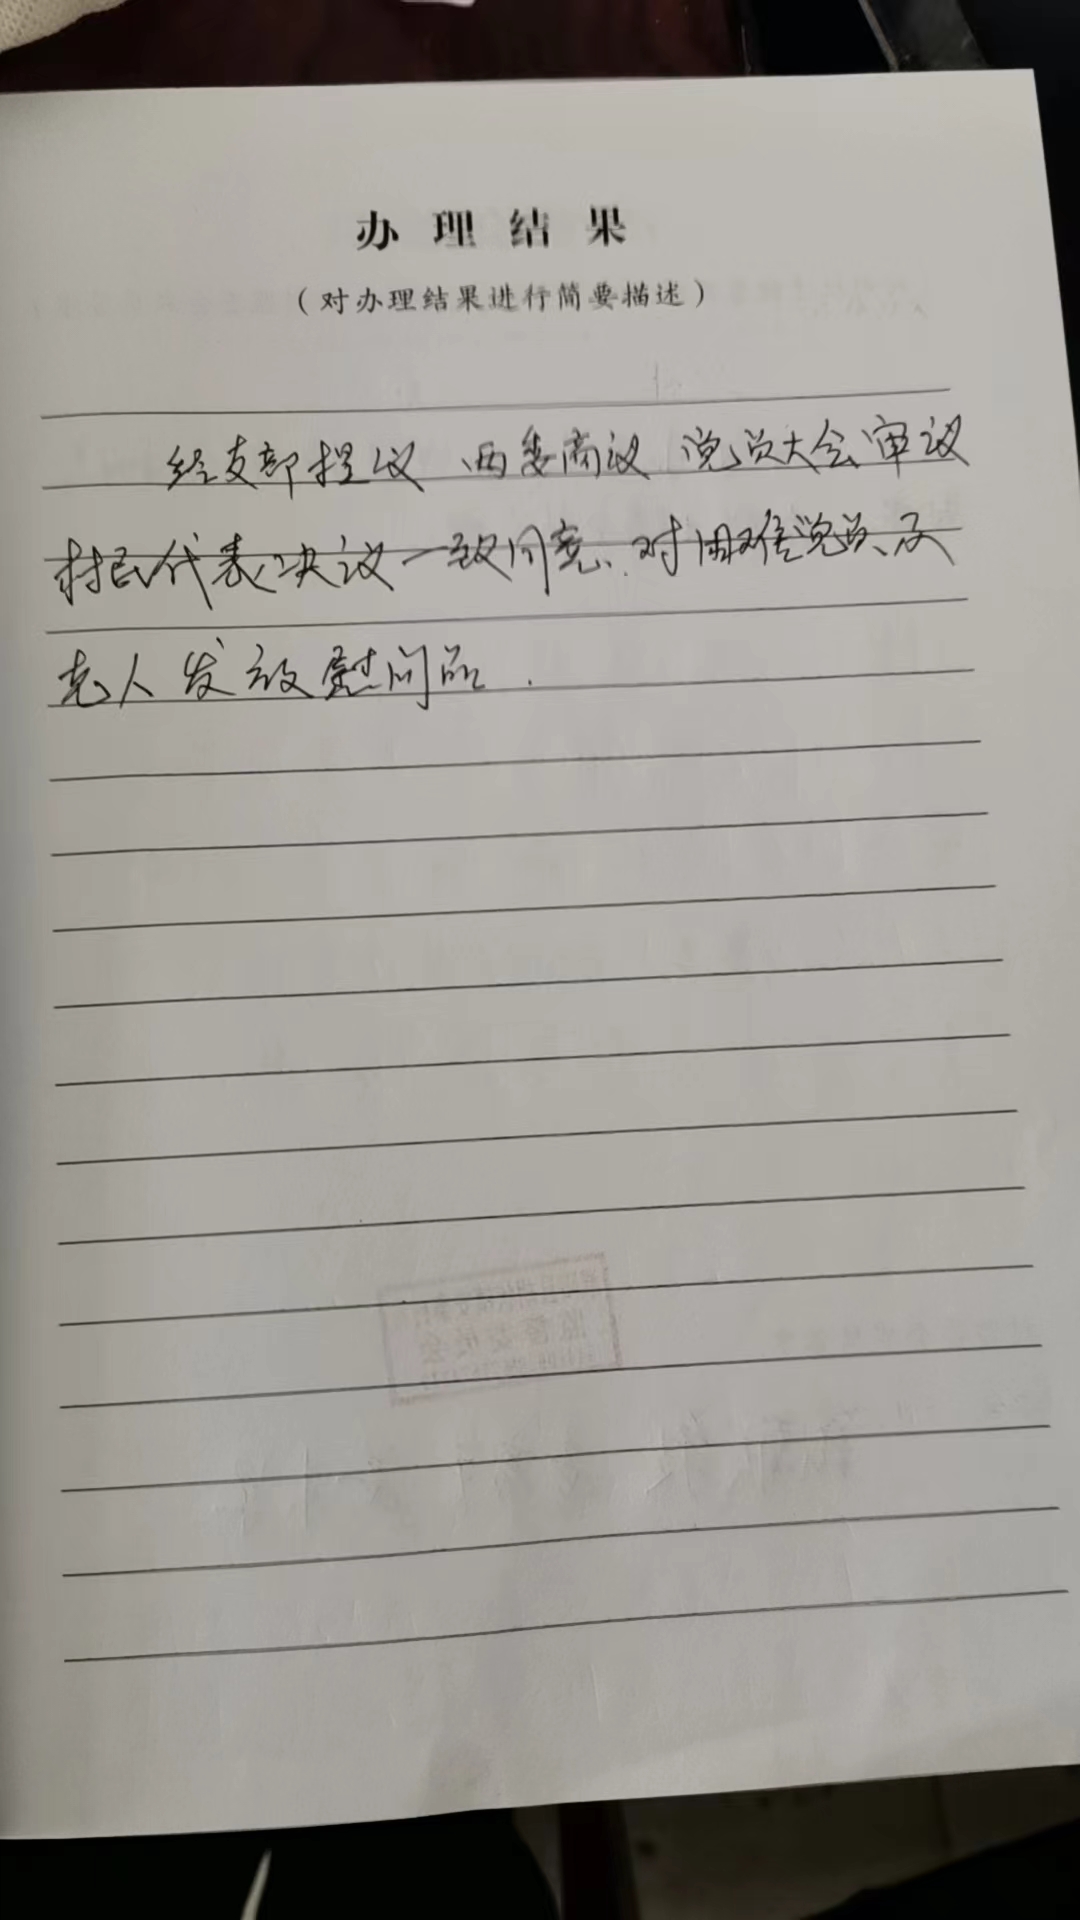 办理结果
（对办理结果进行简要描述）
经支部提议 两委商议 党员大会审议
村民代表决议一致同意、对困难党员及
老人发放慰问品.